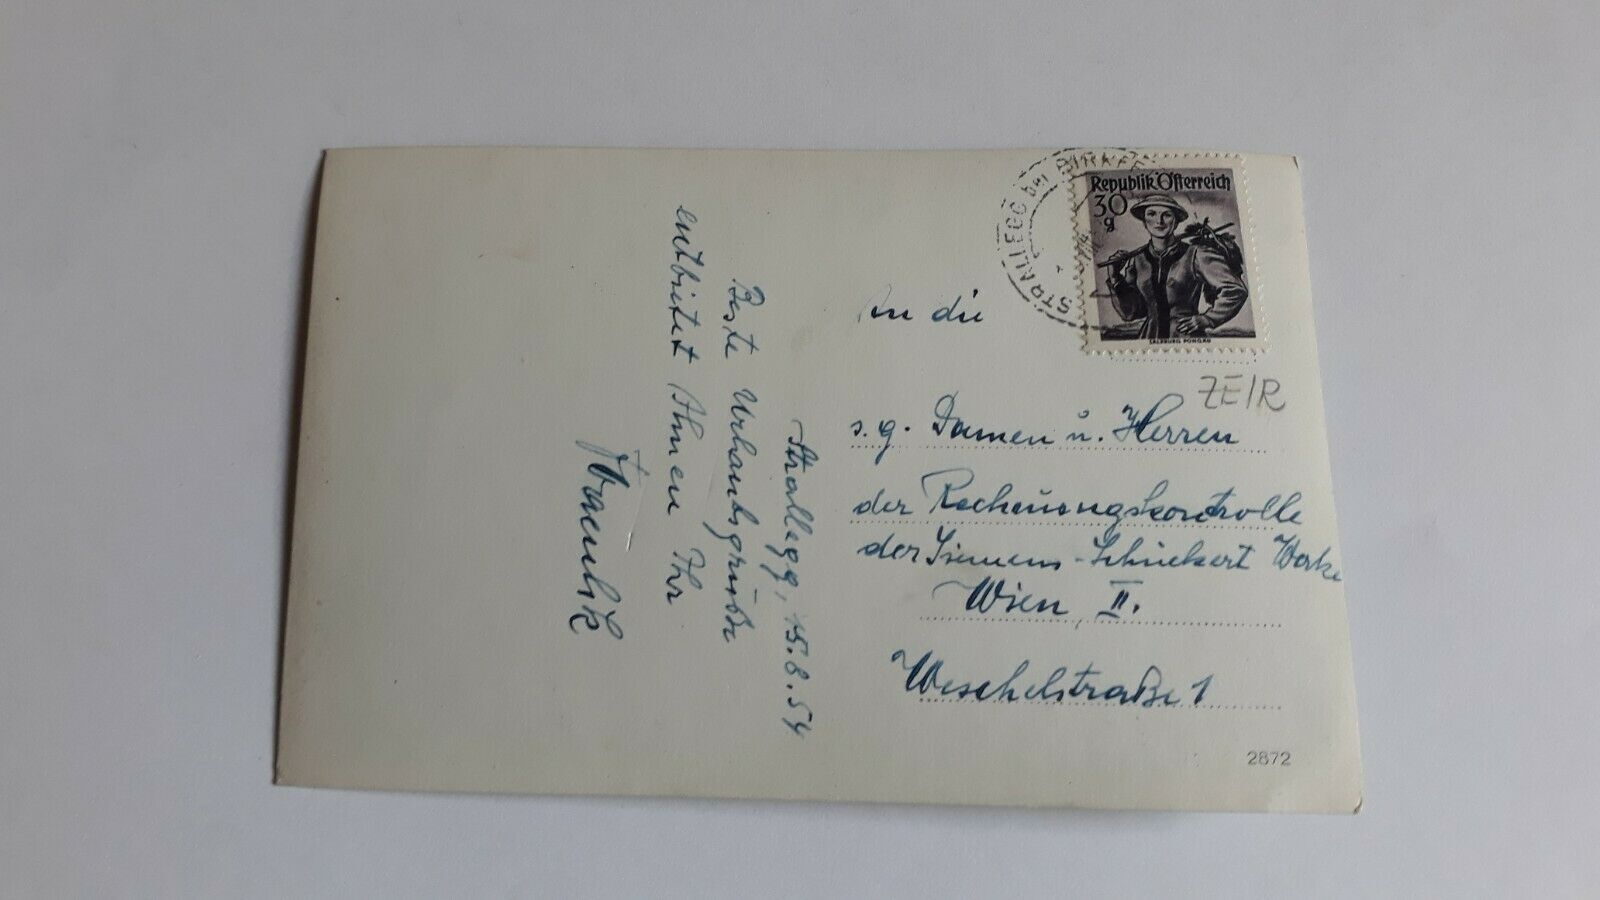 Strallegg, 15.8.54
Beste Urlaubsgrüße
entbietet Ihnen Ihr
STRALLEGG bei BIRKFE
Republik Österreich
30
g
SALZBURG PONGAU
ZE/R
An die
s.g. Damen u. Herren
der Rechnungskontrolle
der Siemens-Schuckert Werke
Wien II.
Weschelstraße 1
2872